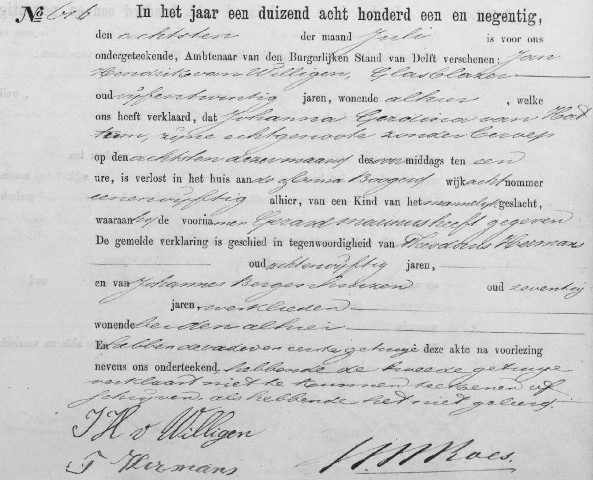 No 616 In het jaar een duizend acht honderd een en negentig,
den achtsten der maand Juli is voor ons
ondergeteekende, Ambtenaar van den Burgerlijken Stand van Delft verschenen: Jan
Hendrik van Willigen, Glasblazer
oud vijfentwintig jaren, wonende alhier, welke
ons heeft verklaard, dat Johanna Gerdina van Hat
tum, zijne echtgenoote zonder beroep
op den achtsten dezer maand des voormiddags ten een
ure, is verlost in het huis aan de wijk acht nummer
eenenvijftig alhier, van een Kind van het mannelijk geslacht,
waaraan hij de voornamen Gerard Marinus heeft gegeven
De gemelde verklaring is geschied in tegenwoordigheid van Theodorus Hermans
oud achtenvijftig jaren,
en van Johannes Berger oud zeventig
jaren, werklieden
wonende beiden alhier
En hebbende vader en eerste getuige deze akte na voorlezing
nevens ons onderteekend. hebbende de tweede getuige
verklaart niet te kunnen teekenen of
schrijven als hebbende het niet geleerd.
J H v Willigen
T Hermans